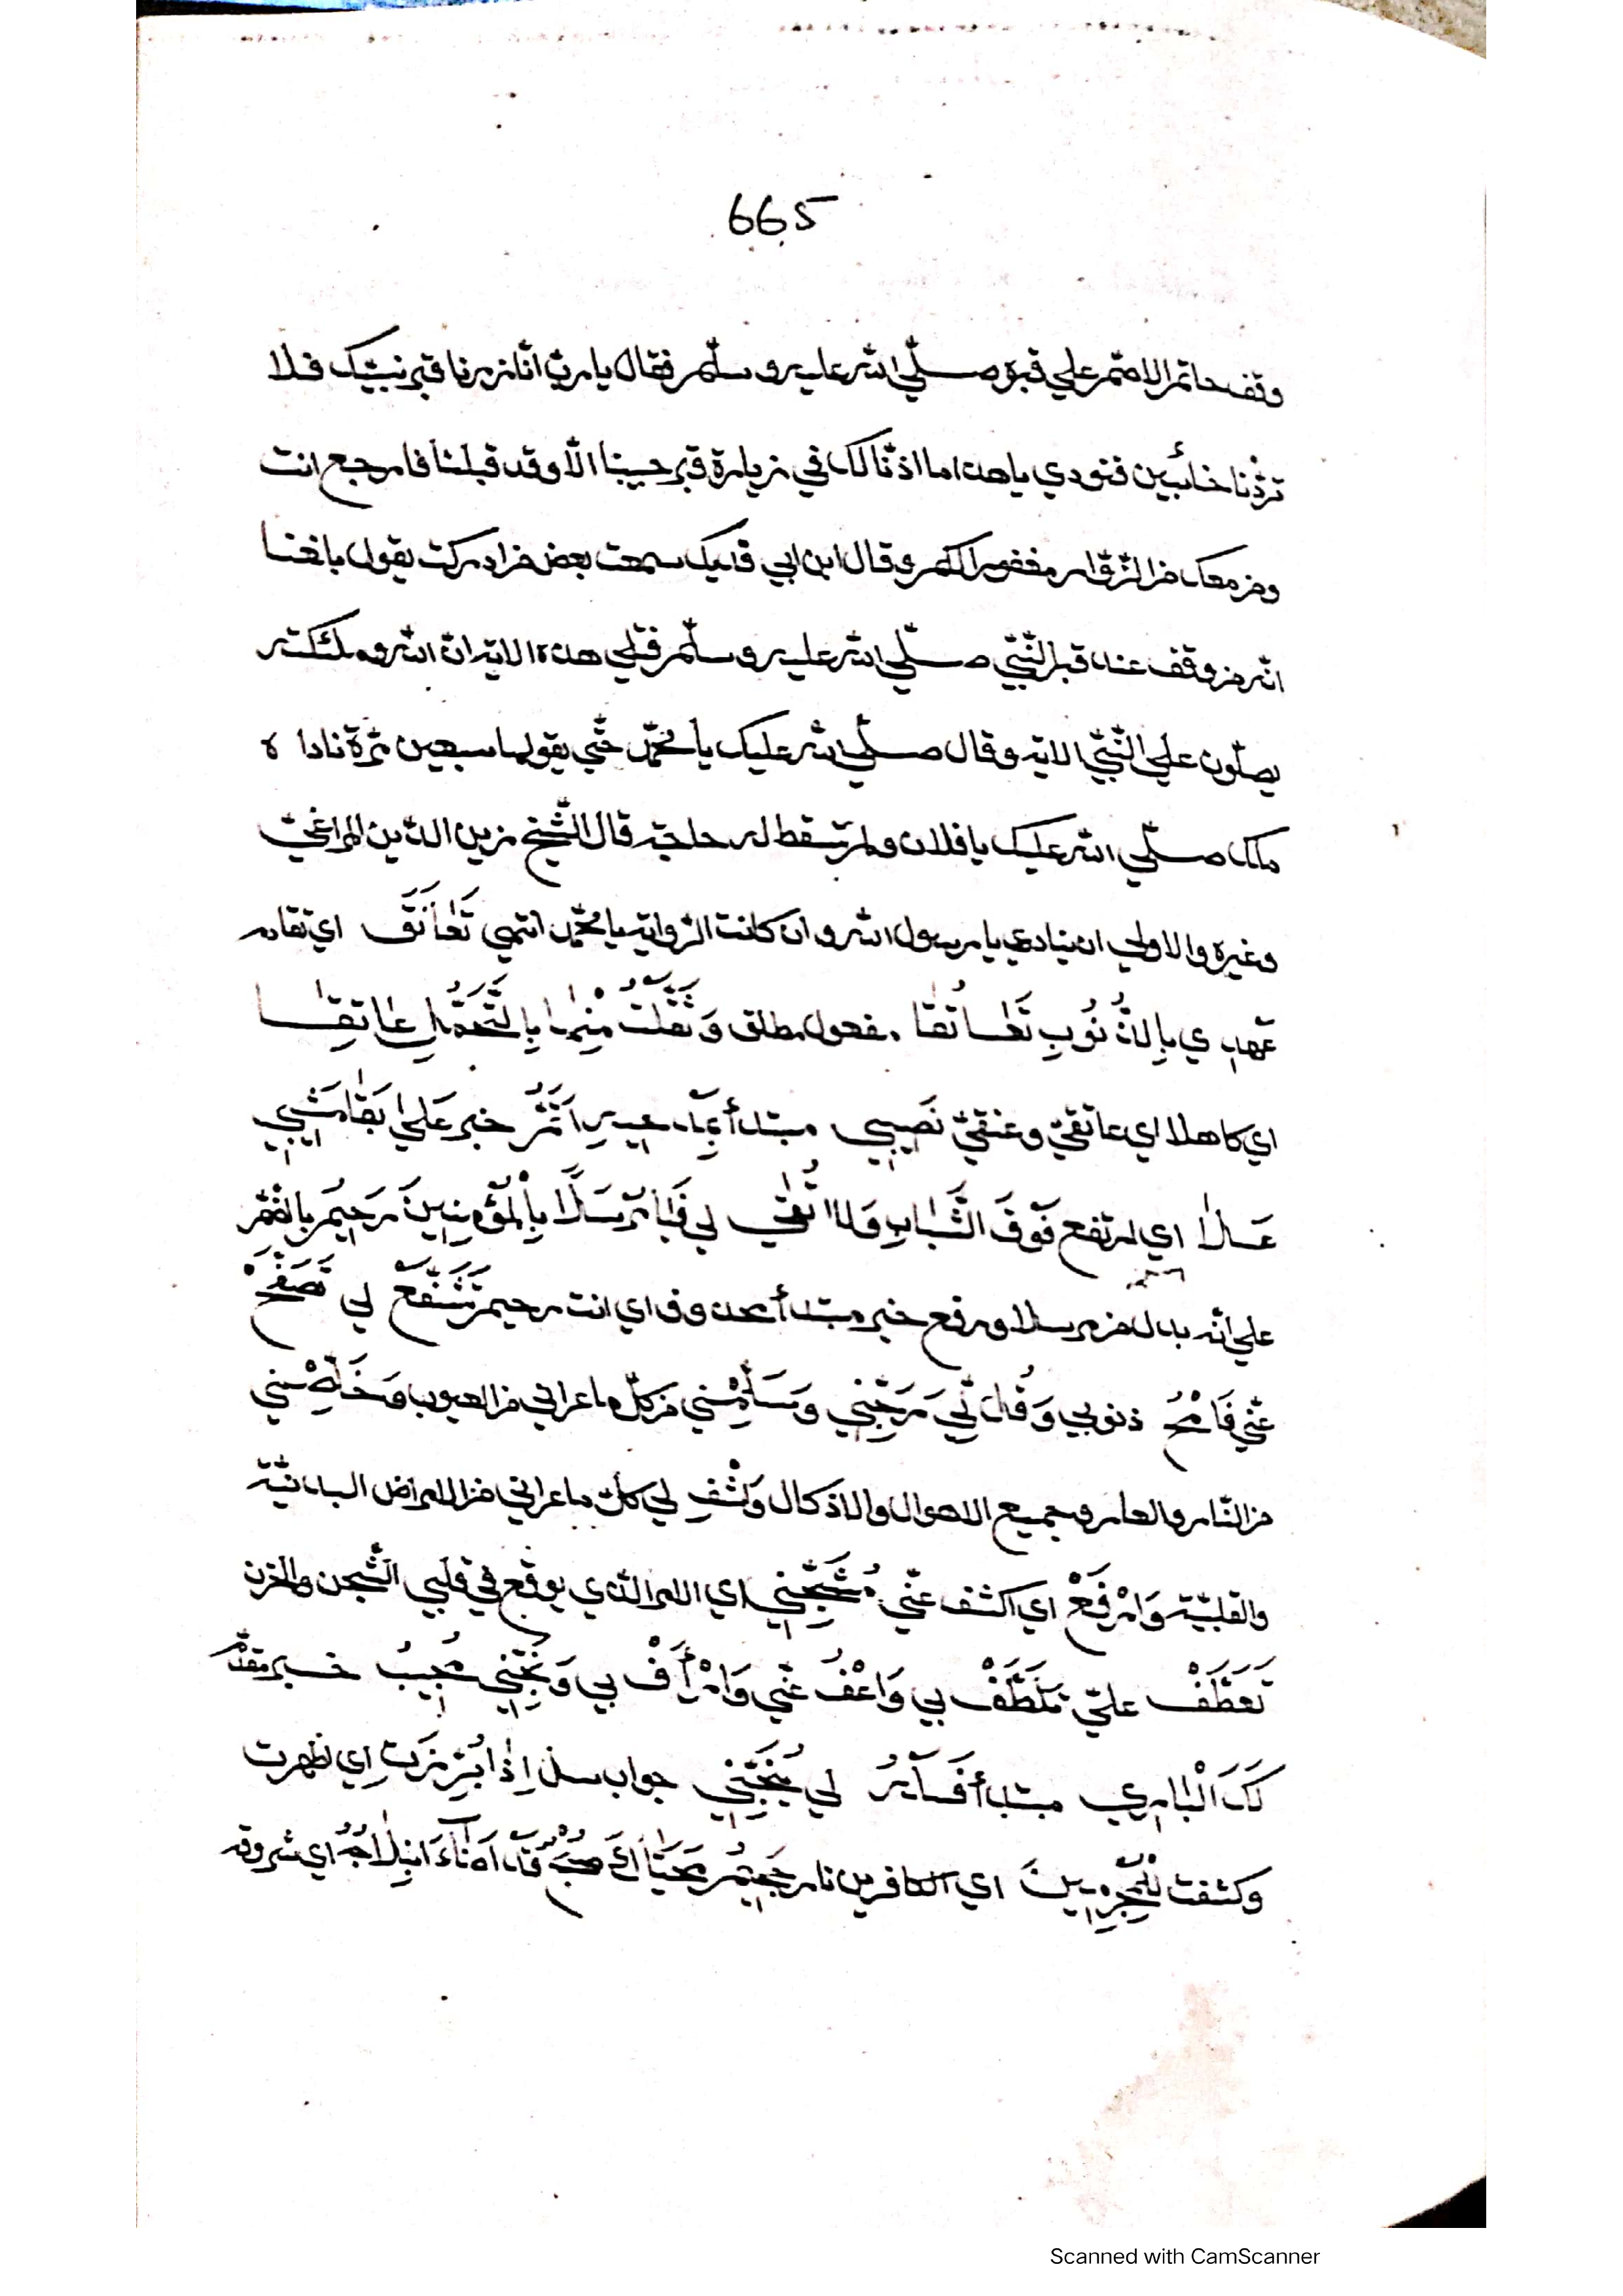 665
وقف حاتم الاصم علي قبره صلّي الله عليه وسلّم فقال يا ربّ انّا زرنا قبر نبيّك فلا
تردّنا خائبين فنودي يا هذا ما اذنّا لك في زيارة قبر حبيبنا الّا وقد قبلنا فارجع انت
ومن معك من الزّوّار مغفورا لكم وقال ابن ابي فديك سمعت بعض من ادركت يقول بلغنا
انّه من وقف عند قبر النّبيّ صلّي الله عليه وسلّم فتلي هذه الاية انّ الله وملئكته
يصلّون علي النّبيّ الاية وقال صلّي الله عليك يا محمّد حتّي يقولها سبعين مرّة ناداه
ملك صلّي الله عليك يا فلان ولم تسقط له حاجة قال الشّيخ زين الدّين المراغيّ
وغيره والاولي ان ينادي يا رسول الله وان كانت الرّواية يا محمّد انتهي تَعَانَقَ اي تقادم
عهدي بِالذُّنُوبِ تَعَانُقًا مفعول مطلق وَثَقَّلْتُ مِنْهَا بِالتَّحَمُّلِ عَاتِقِـا
اي كاهلا اي عاتقيّ وعنقيّ نَصِيبِي مبتدأ
عَلَا اي ارتفع فَوْقَ الشَّبَابِ
علي انّه بدل من مرسلا ورفع خبر مبتدأ محذوف اي انت رحيم تَشَفَّعْ لي تَصَفَّحْ
عَنِّي فَامْحُ ذنوبي وَقُلْ لِّي وَسَلِّمْنِي من كلّ ما عراني من العيوب وَخَلِّصْنِي
من النّار والعار وجميع الاهوال والانكال وَاشْفِ لي كلّ ما عراني من الامراض البدنيّة
والقلبيّة وَارْفَعْ اي اكشف عنّي مُشَجِّنِي اي الامر الّذي يوقع في قلبي الشّجن والحزن
تَعَطَّفْ عليّ تَلَطَّفْ بي وَاعْفُ عَنِّي وَارْأَفْ بي وَنَجِّنِي مُجِيبُ خبر مقدّم
مبتدأ لي يُنَجِّنِي جواب سل اِذَا بُرِّزَتْ اي ظهرت
وكشفت لِلْمُجْرِمِينَ اي الكافرين نار جَحِيمُ اي شروقه
Scanned with CamScanner